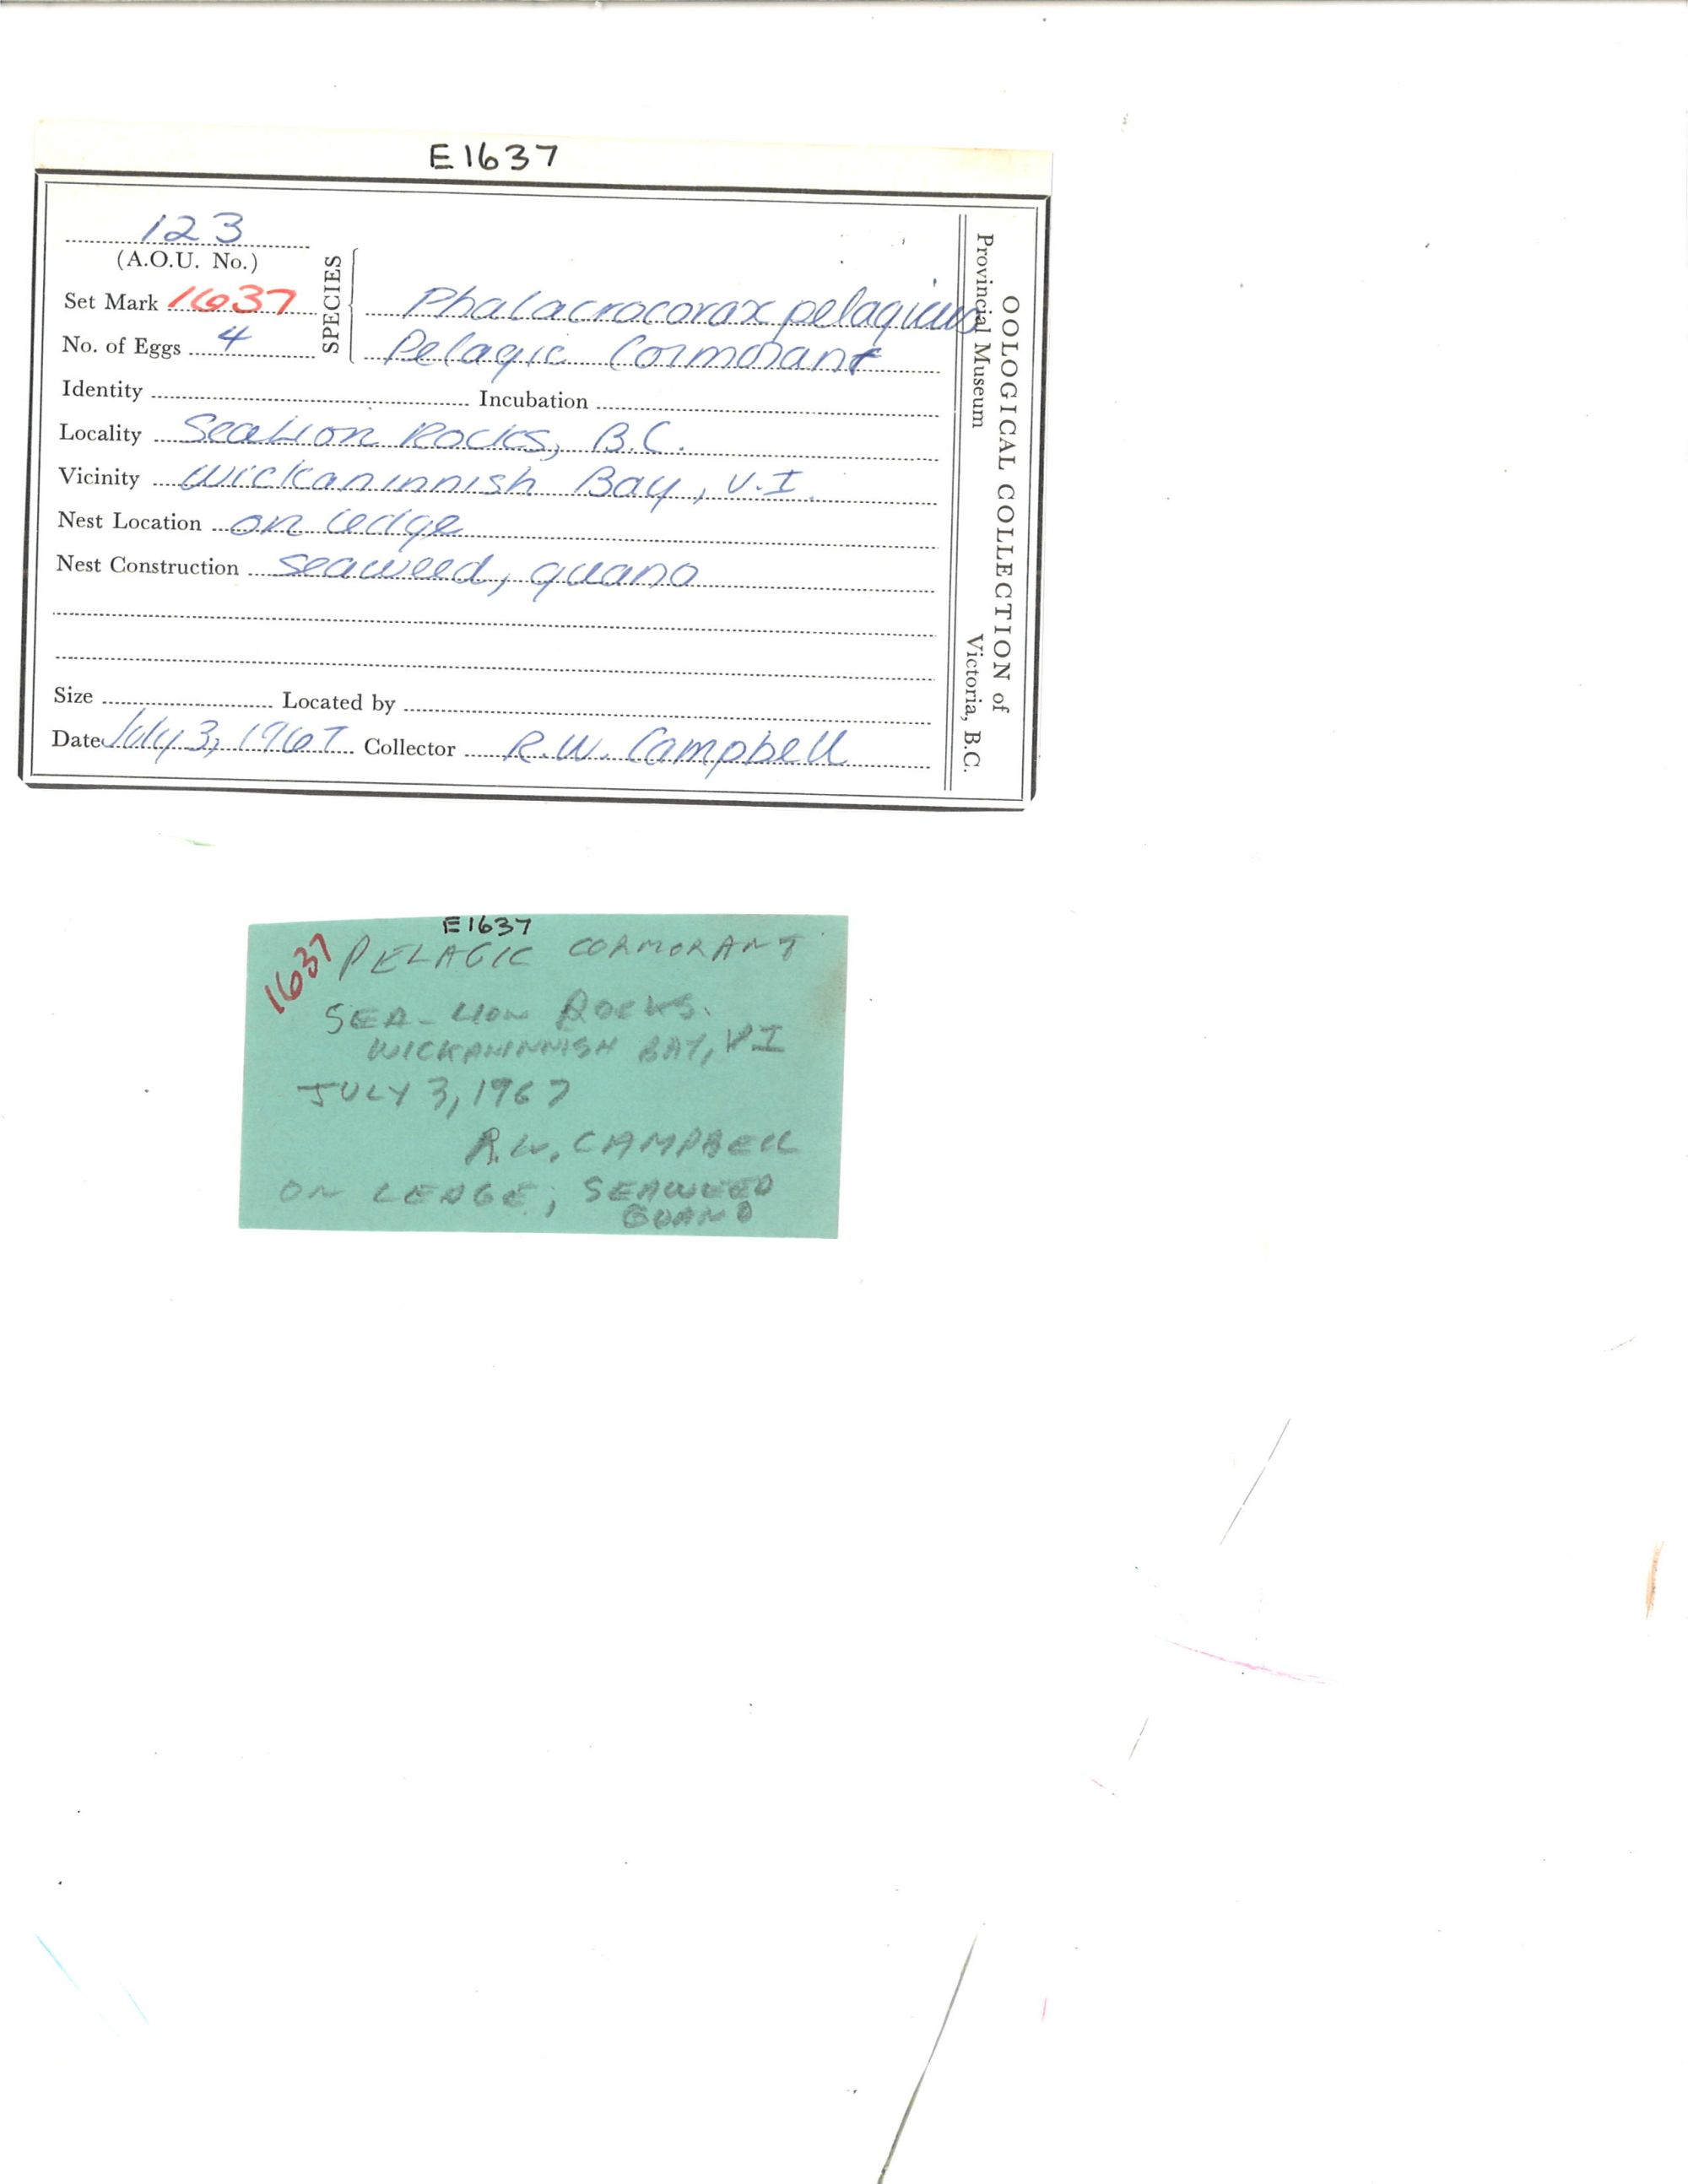 E1637
123
(A.O.U. No.)
Set Mark 1637
No. of Eggs 4
SPECIES
Phalacrocorax pelagicus
Pelagic Cormorant
Identity Incubation
Locality Sea Lion Rocks, B.C.
Vicinity Wickaninnish Bay, V.I.
Nest Location on ledge
Nest Construction seaweed, guano
Size Located by
Date July 3, 1967 Collector R.W. Campbell
OOLOGICAL COLLECTION of
Provincial Museum Victoria, B.C.
E1637
1637
PELAGIC CORMORANT
SEA-LION ROCKS.
WICKANINNISH BAY, VI
JULY 3, 1967
R.W. CAMPBELL
ON LEDGE, SEAWEED
GUANO